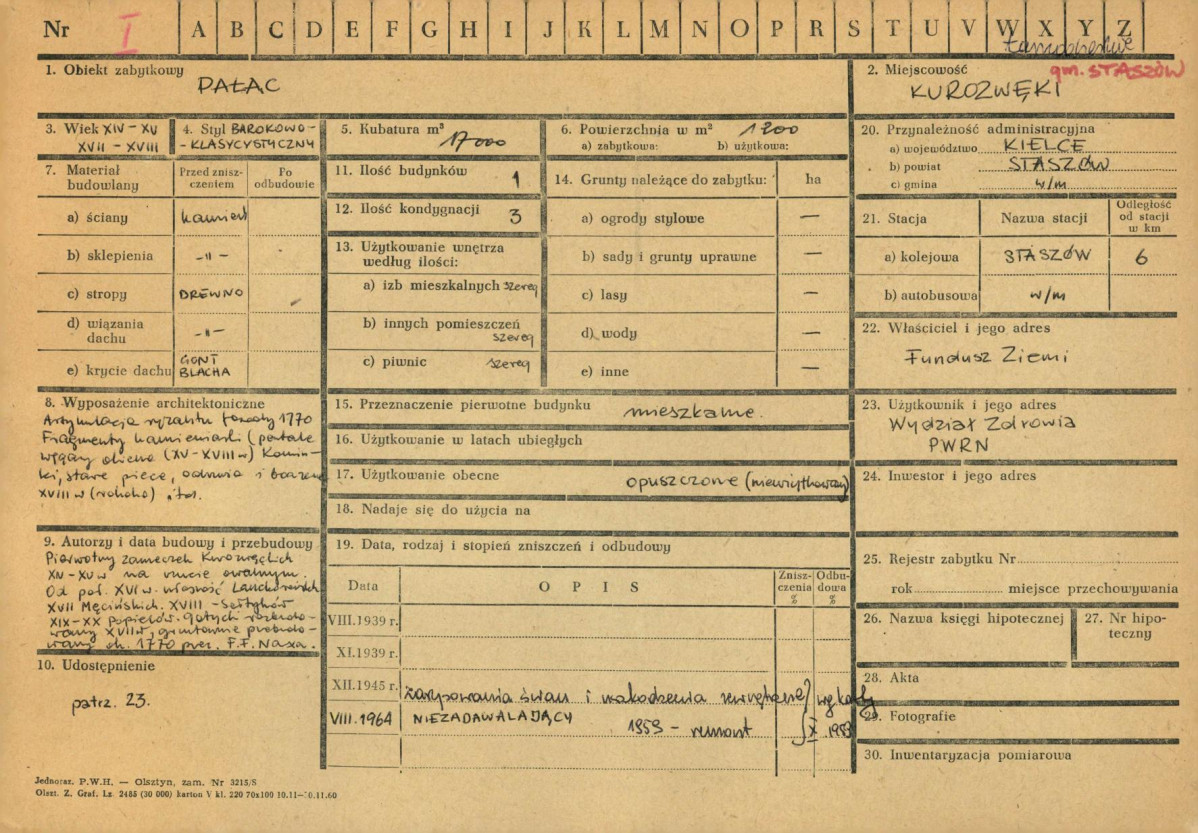 Nr I A B C D E F G H I J K L M N O P R S T U V W X Y Z
gm. STASZÓW
1. Obiekt zabytkowy
PAŁAC
2. Miejscowość
KUROZWĘKI
3. Wiek XIV - XV
XVII - XVIII
4. Styl BAROKOWO -
- KLASYCYSTYCZNY
5. Kubatura m³
17000
6. Powierzchnia w m² 1200
a) zabytkowa: b) użytkowa:
20. Przynależność administracyjna
a) województwo KIELCE
b) powiat STASZÓW
c) gmina w/m
7. Materiał
budowlany
Przed znisz-
czeniem
Po
odbudowie
a) ściany kamień
b) sklepienia -"-
c) stropy DREWNO
d) wiązania
dachu -"-
e) krycie dachu GONT
BLACHA
11. Ilość budynków 1
12. Ilość kondygnacji 3
13. Użytkowanie wnętrza
według ilości:
a) izb mieszkalnych szereg
b) innych pomieszczeń
szereg
c) piwnic szereg
14. Grunty należące do zabytku: ha
a) ogrody stylowe —
b) sady i grunty uprawne —
c) lasy —
d) wody —
e) inne —
21. Stacja Nazwa stacji Odległość
od stacji
w km
a) kolejowa STASZÓW 6
b) autobusowa w/m
22. Właściciel i jego adres
Fundusz Ziemi
8. Wyposażenie architektoniczne
Artykulacja ryzalitu fasady 1770
Fragmenty kamieniarki (portale
węgary okienne (XV-XVIII w) Komin-
ki, stare piece, odrzwia i boazerie
XVIII w (rokoko) itd.
15. Przeznaczenie pierwotne budynku mieszkalne.
16. Użytkowanie w latach ubiegłych
17. Użytkowanie obecne opuszczone (nieużytkowany)
18. Nadaje się do użycia na
23. Użytkownik i jego adres
Wydział Zdrowia
PWRN
24. Inwestor i jego adres
9. Autorzy i data budowy i przebudowy
Pierwotny zameczek Kurozwęckich
XIV-XV w na rzucie owalnym.
Od poł. XVI w. własność Lanckorońskich
XVII Męcińskich. XVIII - Sołtyków
XIX-XX Popielów. Gotycki rozbudo-
wany XVII w, gruntownie przebudo-
wany ok. 1770 przez F.F. Naxa.
10. Udostępnienie
patrz. 23.
19. Data, rodzaj i stopień zniszczeń i odbudowy
Data O P I S Znisz-
czenia
% Odbu-
dowa
%
VIII.1939 r.
XI.1939 r.
XII.1945 r. zarysowania ścian i uszkodzenia wewnętrzne
VIII.1964 NIEZADAWALAJĄCY 1959 - remont X 1959
25. Rejestr zabytku Nr
rok miejsce przechowywania
26. Nazwa księgi hipotecznej
27. Nr hipo-
teczny
28. Akta
29. Fotografie
30. Inwentaryzacja pomiarowa
Jednoraz. P.W.H. — Olsztyn, zam. Nr 3215/S
Olszt. Z. Graf. Lz. 2485 (30 000) karton V kl. 220 70x100 10.11—30.11.60